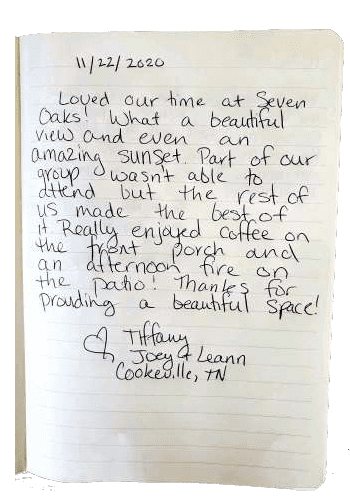 11/22/2020
Loved our time at Seven
Oaks! What a beautiful
view and even an
amazing sunset. Part of our
group wasn't able to
attend but the rest of
us made the best of
it Really enjoyed coffee on
the front porch and
an afternoon fire on
the patio! Thanks for
providing a beautiful space!
♡ Tiffany
Joey & Leann
Cookeville, TN